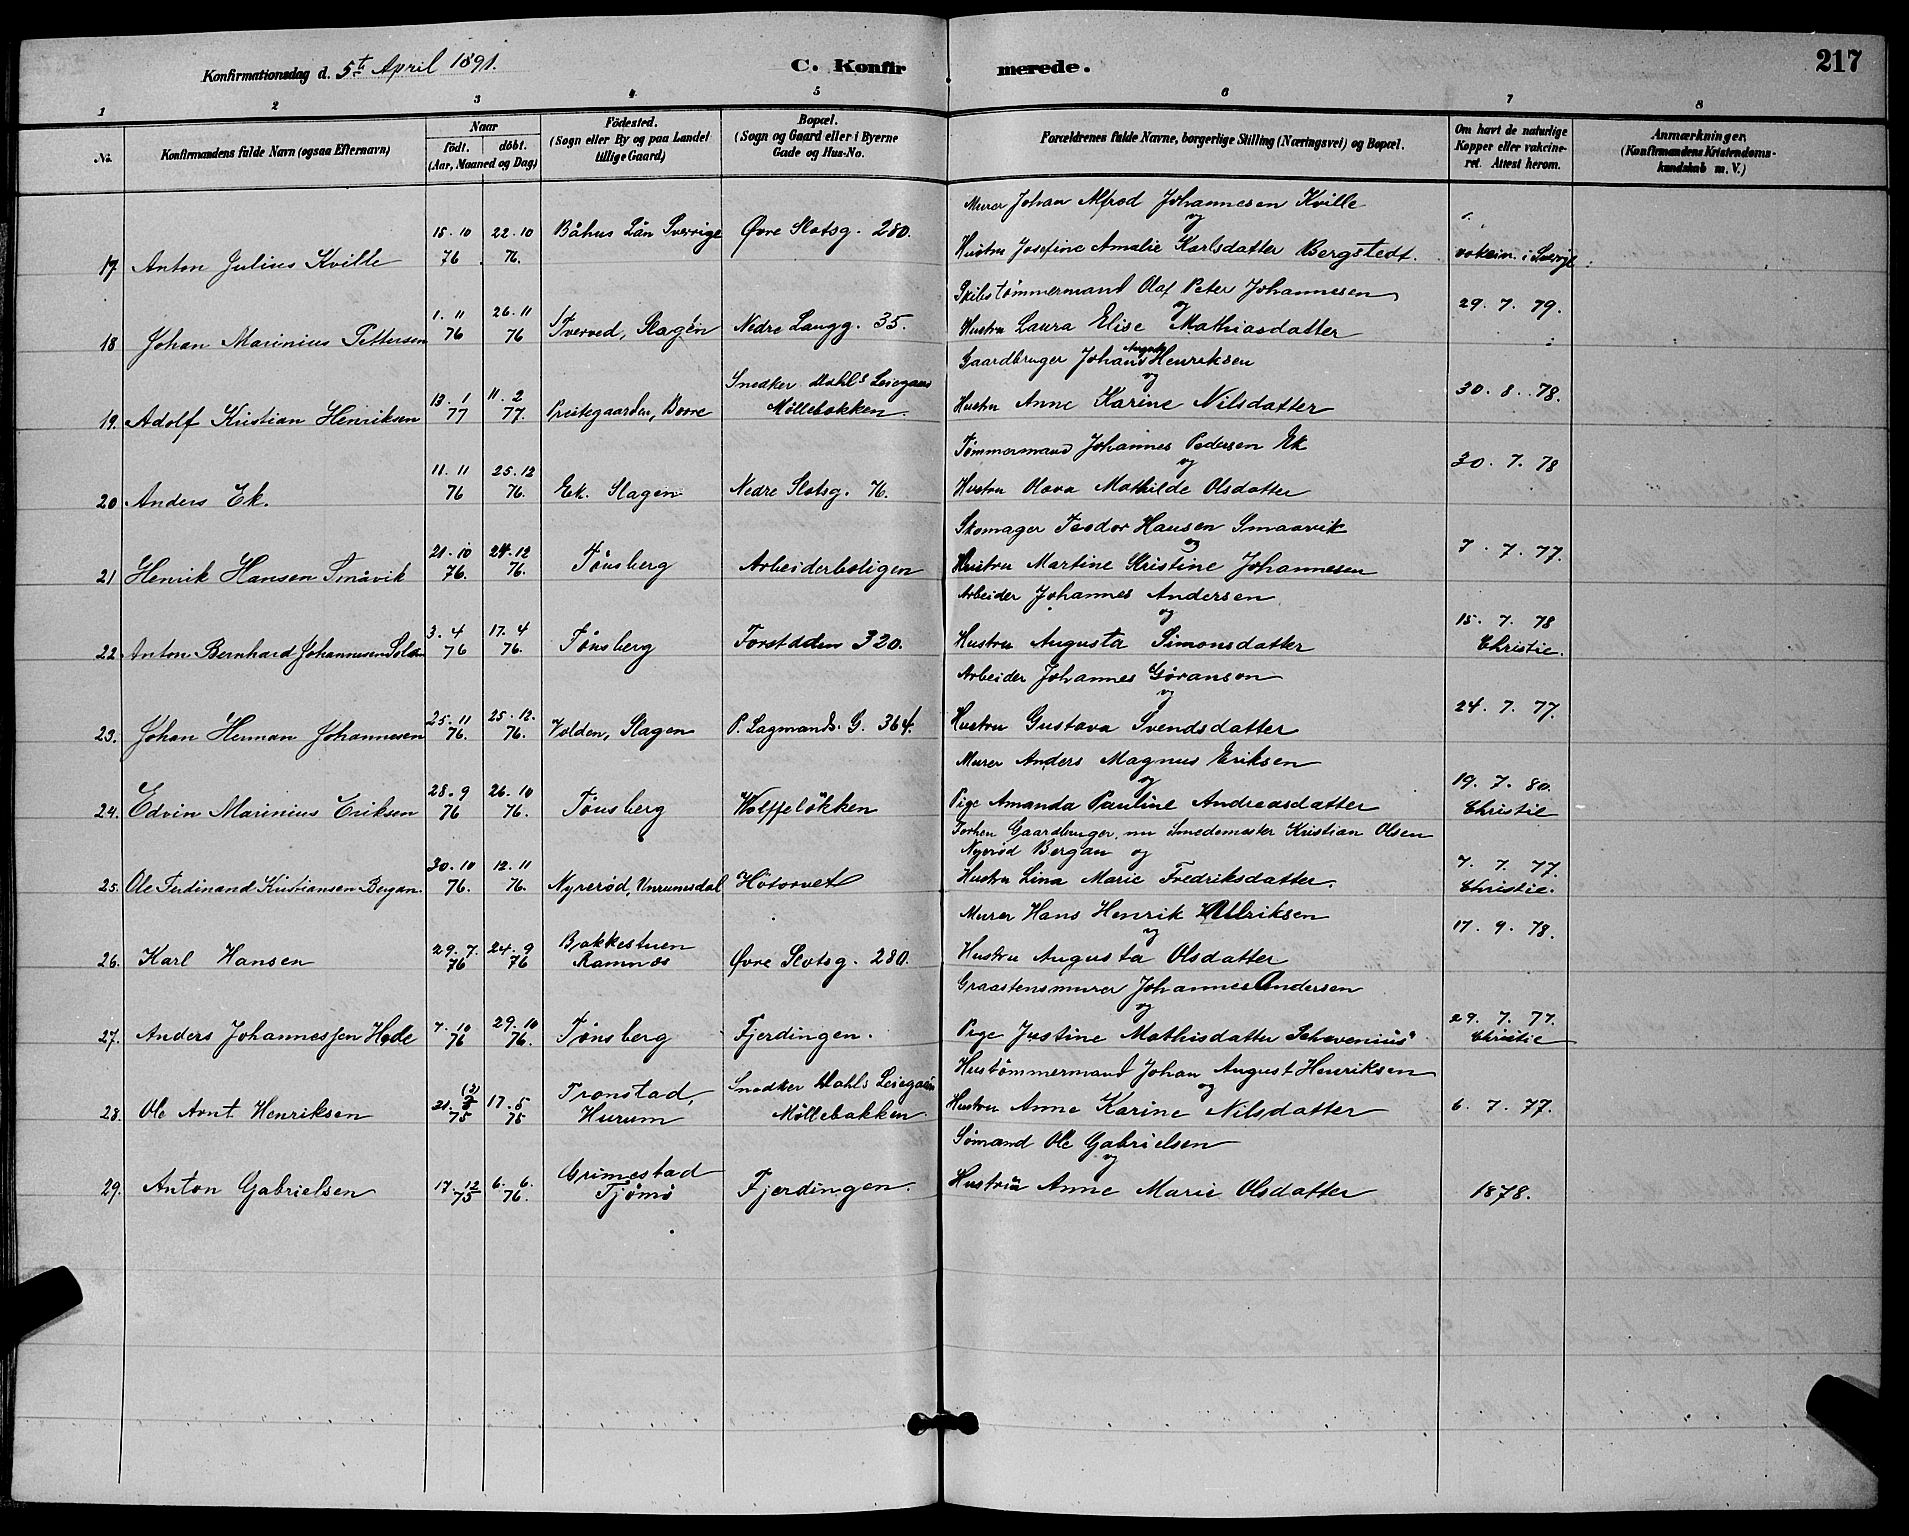 Konfirmationsdag d. 5te April 1891.
C. Konfirmerede.
217
1 2 3 4 5 6 7 8
No. Konfirmandens fulde Navn (ogsaa Efternavn)
Naar
födt. döbt.
(Aar, Maaned og Dag)
Födested.
(Sogn eller By og paa Landet
tillige Gaard)
Bopæl.
(Sogn og Gaard eller i Byerne
Gade og Hus-No.
Forældrenes fulde Navne, borgerlige Stilling (Næringsvei) og Bopæl.
Om havt de naturlige
Kopper eller vakcine-
ret. Attest herom.
Anmærkninger,
(Konfirmandens Kristendoms-
kundskab m. V.)
Murer Johan Alfred Johannesen Kville
og
15.10 22.10 Båhus Län Sverrige Øvre Slotsg. 280.
17 Anton Julius Kville 76 76. Hustru Josefine Amalie Karlsdatter Bergstedt. vakcin. i Sverige
Skibstømmermand Olaf Peter Johannesen
og
1.11 26.11 29.7.79.
18 Johan Marinius Pettersen 76 76 Tverved, Slagen Nedre Langg. 35. Hustru Laura Elise Mathiasdatter
Gaardbruger Johan August Henriksen
og
13.1 11.2 Snedker Dahls Leiegaard 30.8.78.
19. Adolf Kristian Henriksen 77 77. Prestegaarden, Borre Møllebakken. Hustru Anne Karine Nilsdatter
Tømmermand Johannes Pedersen Ek
og
11.11 25.12 30.7.78
20 Anders Ek. 76 76. Ek. Slagen Nedre Slotsg. 76. Hustru Olava Mathilde Olsdatter
Skomager Teodor Hansen Smaavik
og
21.10 24.12 7.7.77.
21 Henrik Hansen Småvik 76. 76. Tønsberg Arbeiderboligen Hustru Martine Kristine Johannesen
Arbeider Johannes Andersen
og
3.4 17.4 15.7.78
22. Anton Bernhard Johannesen 76 76. Tønsberg Forstaden 320. Hustru Augusta Simonsdatter Christie.
Arbeider Johannes Göranson
og
25.11 25.12. 24.7.77.
23. Johan Herman Johannesen 76. 76. Volden, Slagen P. Lagmands. G. 364. Hustru Gustava Svendsdatter
Murer Anders Magnus Eriksen
og
28.9 26.10 19.7.80.
24. Edvin Marinius Eriksen 76 76. Tønsberg Wolffeløkken Pige Amanda Pauline Andreasdatter Christie
Forhen Gaardbruger, nu Smedemester Kristian Olsen
Nyerød Bergan og
30.10 12.11 7.7.77.
25. Ole Ferdinand Kristiansen Bergan. 76. 76. Nyrerød, Unrumsdal Høtorvet Hustru Lina Marie Fredriksdatter. Christie.
Murer Hans Henrik Ulriksen
og
29.7. 24.9 Bakkestuen 17.9.78.
26. Karl Hansen 76 76 Ramnæs Øvre Slotsg. 280. Hustru Augusta Olsdatter
Graastensmurer Johannes Andersen
og
7.10 29.10 29.7.77.
27. Anders Johannessen Hede 76 76. Tønsberg Fjerdingen. Pige Justine Mathisdatter Schevenius Christie
Hustømmermand Johan August Henriksen
og
21. (3) 17.5 Tronstad, Snedker Dahls Leiegaard
28. Ole Arnt. Henriksen 75 75 Hurum Møllebakken. Hustru Anne Karine Nilsdatter 6.7.77.
Sømand Ole Gabrielsen
og
17.12 6.6. Grimestad
29. Anton Gabrielsen 75 76. Tjømø Fjerdingen. Hustru Anne Marie Olsdatter 1878.